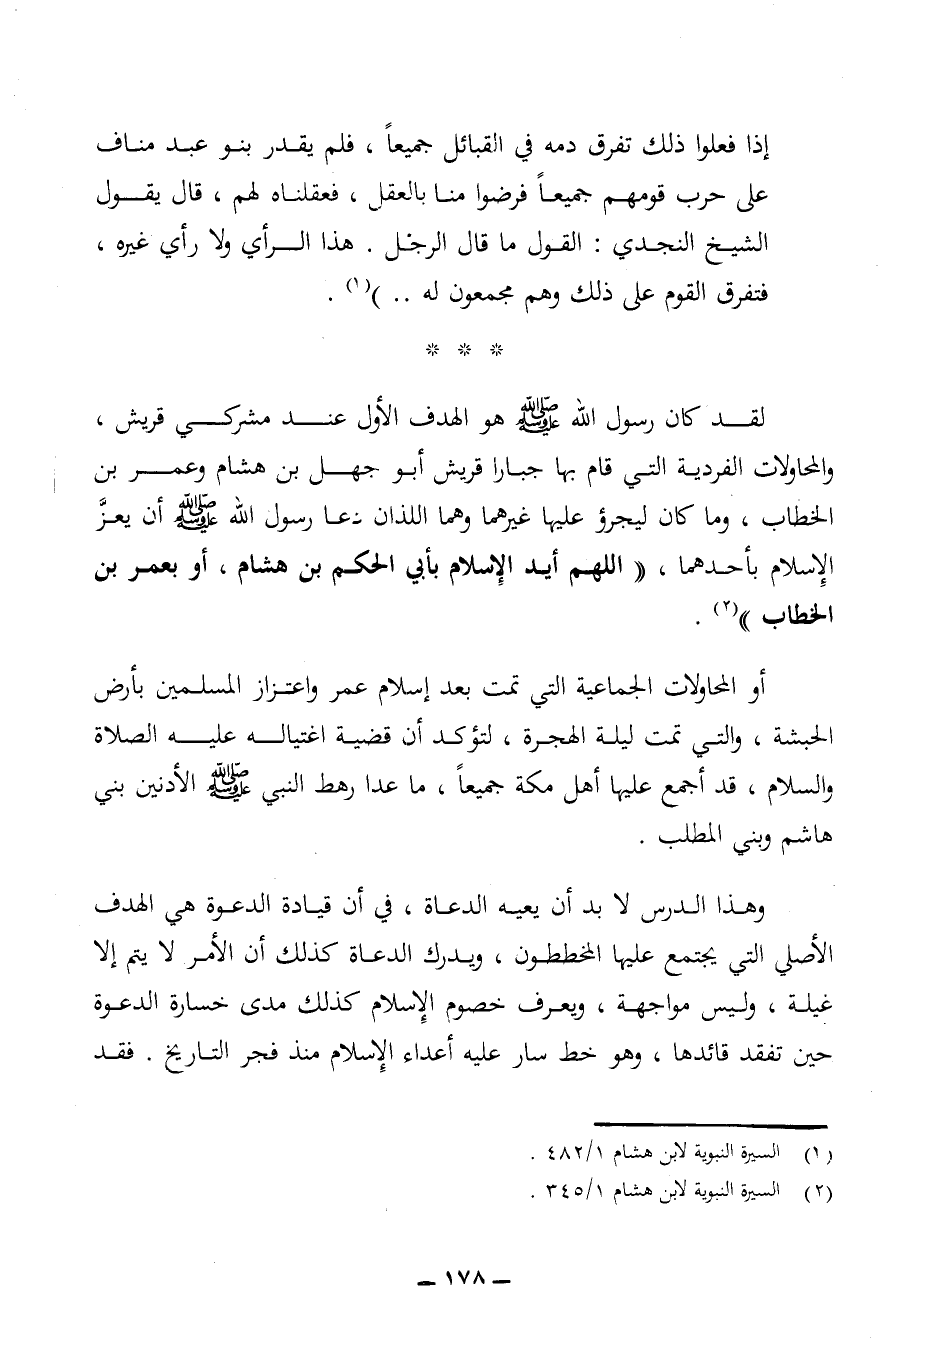 إذا فعلوا ذلك تفرق دمه في القبائل جميعاً ، فلم يقدر بنو عبد مناف
على حرب قومهم جميعاً فرضوا منا بالعقل ، فعقلناه لهم ، قال يقول
الشيخ النجدي : القول ما قال الرجل . هذا الرأي ولا رأي غيره ،
فتفرق القوم على ذلك وهم مجمعون له .. )(١) .
* * *
لقد كان رسول الله ﷺ هو الهدف الأول عند مشركي قريش ،
والمحاولات الفردية التي قام بها جبارا قريش أبو جهل بن هشام وعمر بن
الخطاب ، وما كان ليجرؤ عليها غيرهما وهما اللذان دعا رسول الله ﷺ أن يعزَّ
الإسلام بأحدهما ، (( اللهم أيد الإسلام بأبي الحكم بن هشام ، أو بعمر بن
الخطاب ))(٢) .
أو المحاولات الجماعية التي تمت بعد إسلام عمر واعتزاز المسلمين بأرض
الحبشة ، والتي تمت ليلة الهجرة ، لتؤكد أن قضية اغتياله عليه الصلاة
والسلام ، قد أجمع عليها أهل مكة جميعاً ، ما عدا رهط النبي ﷺ الأدنين بني
هاشم وبني المطلب .
وهذا الدرس لا بد أن يعيه الدعاة ، في أن قيادة الدعوة هي الهدف
الأصلي التي يجتمع عليها المخططون ، ويدرك الدعاة كذلك أن الأمر لا يتم إلا
غيلة ، وليس مواجهة ، ويعرف خصوم الإسلام كذلك مدى خسارة الدعوة
حين تفقد قائدها ، وهو خط سار عليه أعداء الإسلام منذ فجر التاريخ . فقد
(١) السيرة النبوية لابن هشام ٤٨٢/١ .
(٢) السيرة النبوية لابن هشام ٣٤٥/١ .
– ١٧٨ –